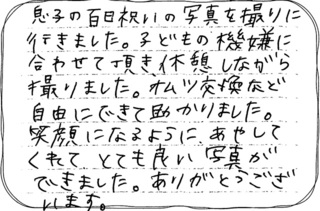 息子の百日祝いの写真を撮りに
行きました。子どもの機嫌に
合わせて頂き休憩しながら
撮りました。オムツ交換など
自由にできて助かりました。
笑顔になるように、あやして
くれて、とても良い写真が
できました。ありがとうござ
います。